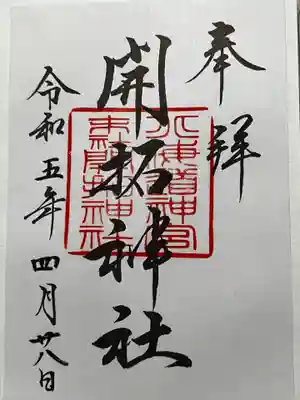 奉拝
開拓神社
北海道神宮
末開拓神社
令和五年四月廿八日